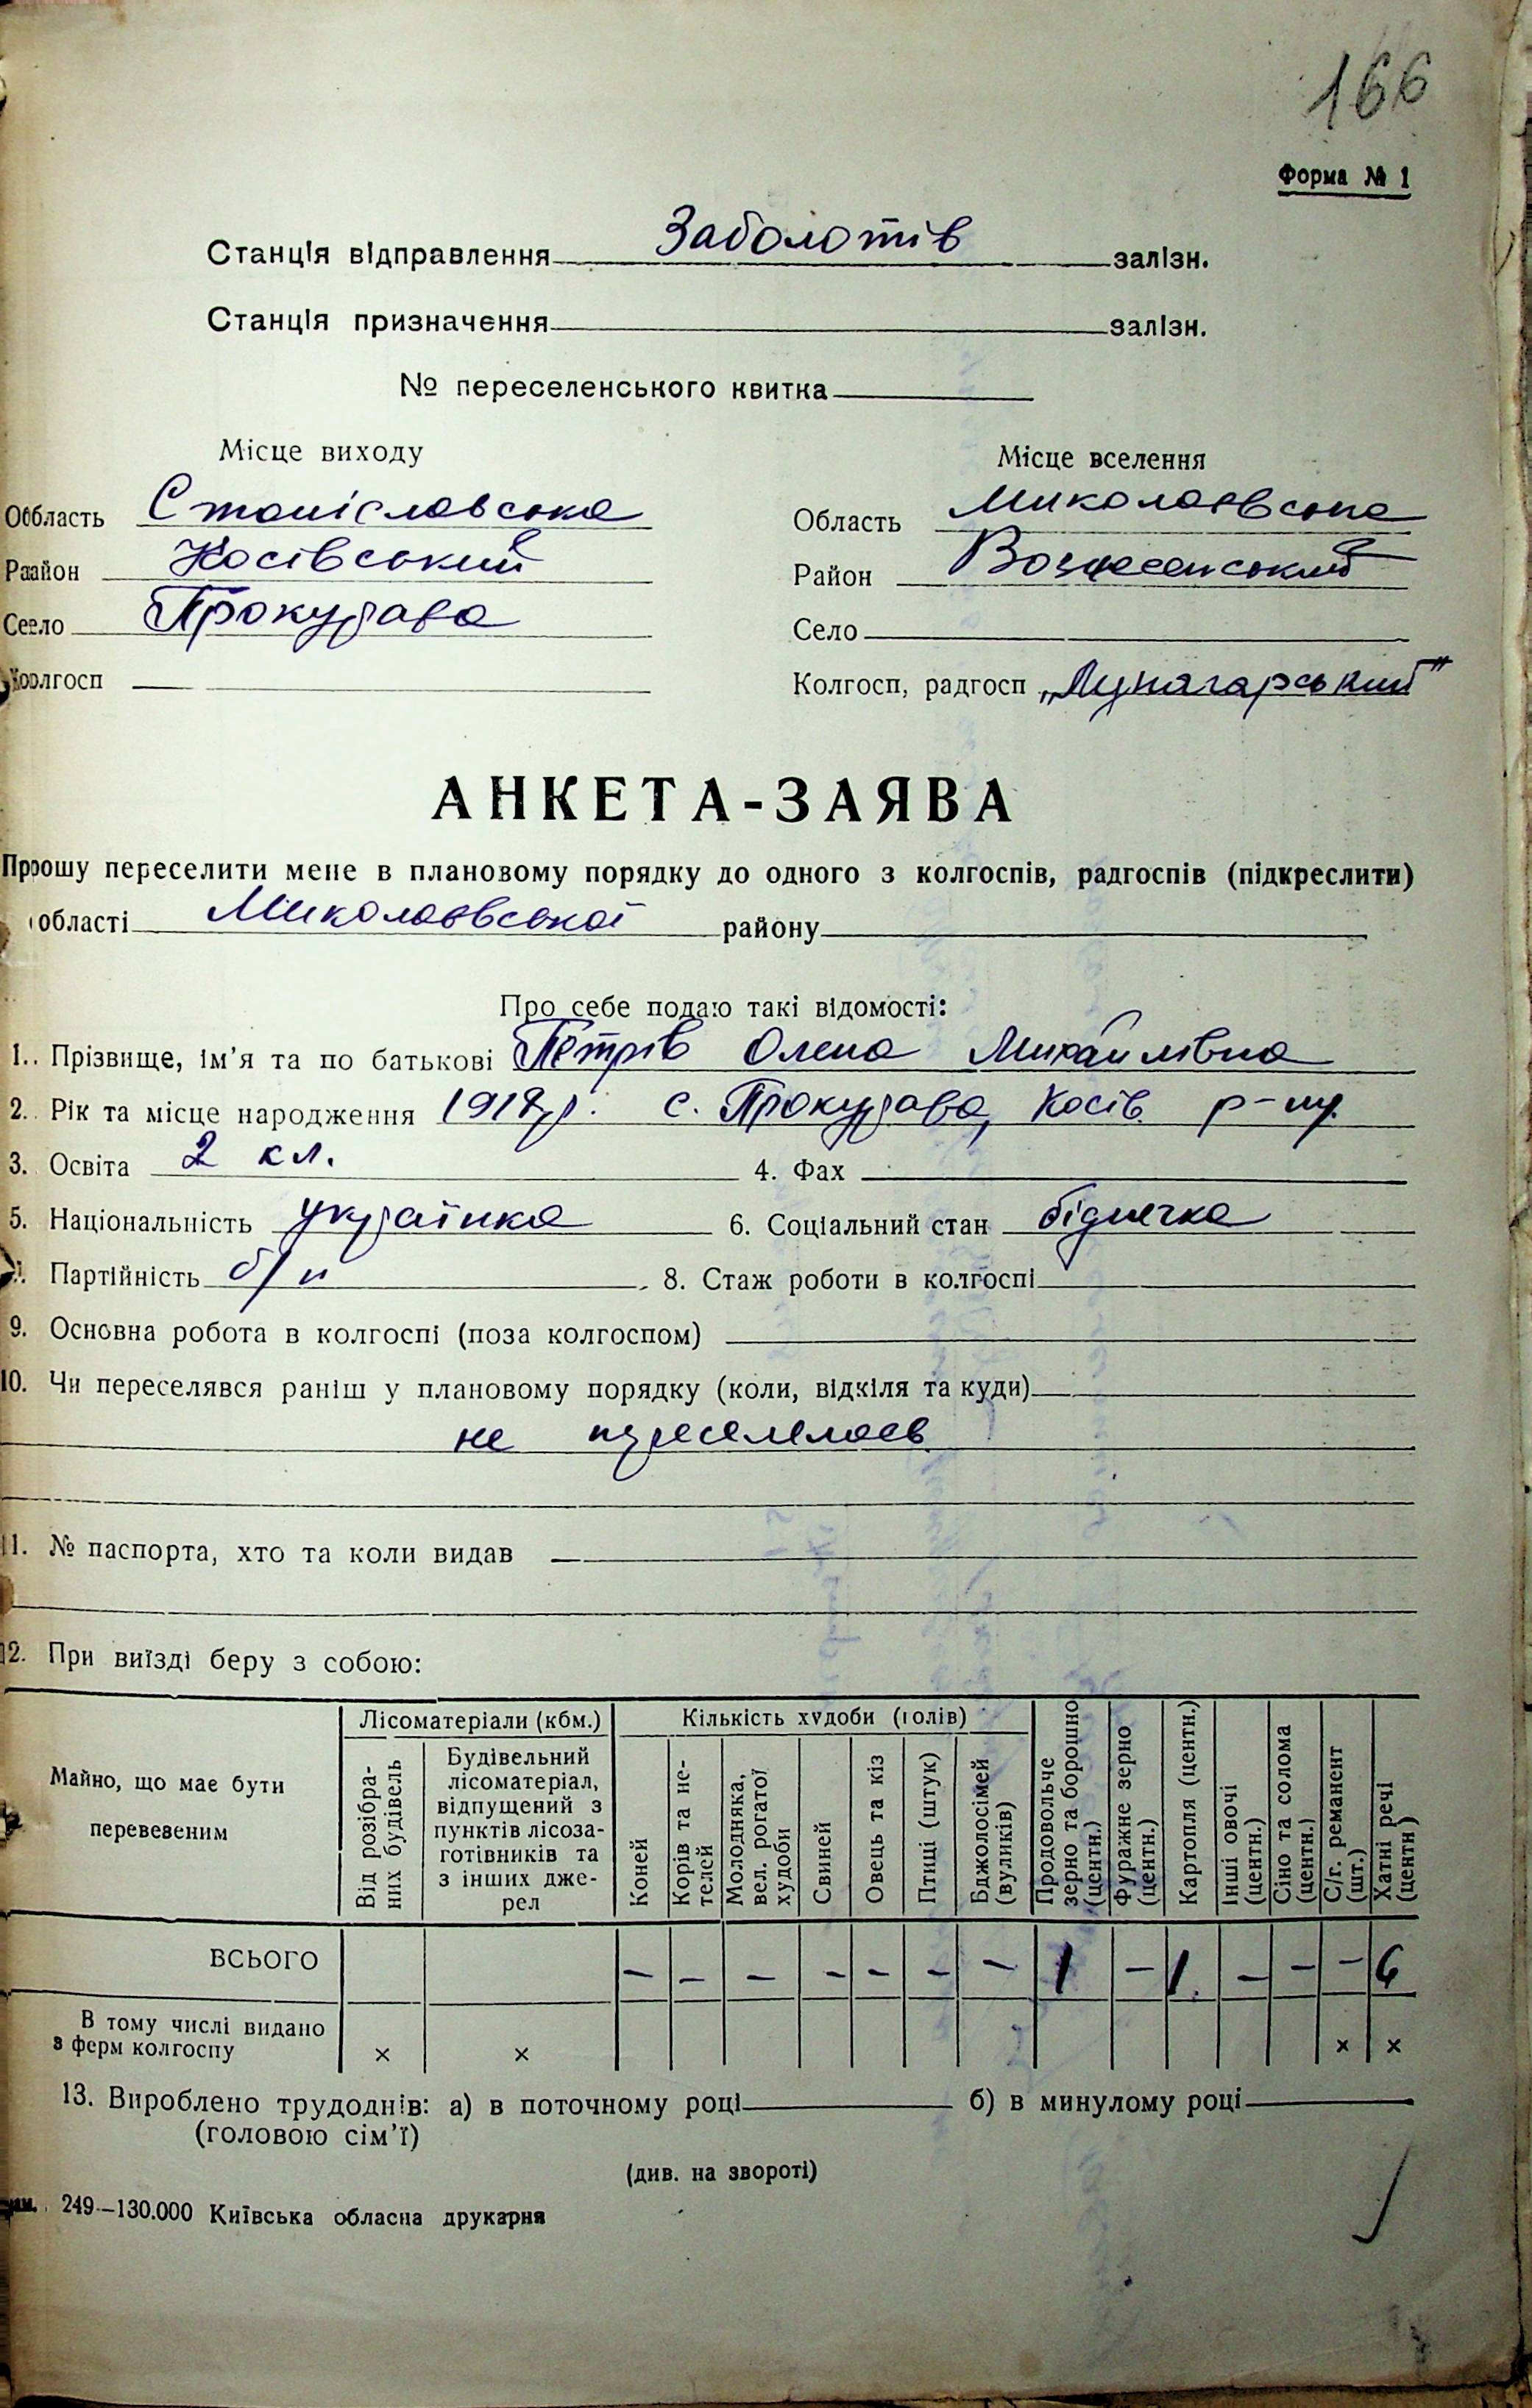 166
Форма № 1
Станція відправлення Заболотів залізн.
Станція призначення залізн.
№ переселенського квитка
Місце виходу Місце вселення
Область Станіславська Область Миколаївська
Район Косівський Район Вознесенський
Село Прокурава Село
Колгосп Колгосп, радгосп
АНКЕТА-ЗАЯВА
Прошу переселити мене в плановому порядку до одного з колгоспів, радгоспів (підкреслити)
області Миколаївської району
Про себе подаю такі відомості:
1. Прізвище, ім'я та по батькові Петрів Олена Михайлівна
2. Рік та місце народження с. Прокурава, Косів. р-ну.
3. Освіта 2 кл. 4. Фах
5. Національність українка 6. Соціальний стан біднячка
7. Партійність б/п 8. Стаж роботи в колгоспі
9. Основна робота в колгоспі (поза колгоспом)
10. Чи переселявся раніш у плановому порядку (коли, відкіля та куди)
не
11. № паспорта, хто та коли видав —
12. При виїзді беру з собою:
Майно, що має бути перевезеним
Лісоматеріали (кбм.)
Від розібраних будівель
Будівельний лісоматеріал, відпущений з пунктів лісозаготівників та з інших джерел
Кількість худоби (голів)
Коней
Корів та нетелей
Молодняка, вел. рогатої худоби
Свиней
Овець та кіз
Птиці (штук)
Бджолосімей (вуликів)
Продовольче зерно та борошно (центн.)
Фуражне зерно (центн.)
Картопля (центн.)
Інші овочі (центн.)
Сіно та солома (центн.)
С/г. реманент (шт.)
Хатні речі (центн)
ВСЬОГО – – – – – – – 1 – 1 – – – 6
В тому числі видано з ферм колгоспу × × × ×
13. Вироблено трудоднів: а) в поточному році б) в минулому році
(головою сім'ї)
(див. на звороті)
249—130.000 Київська обласна друкарня